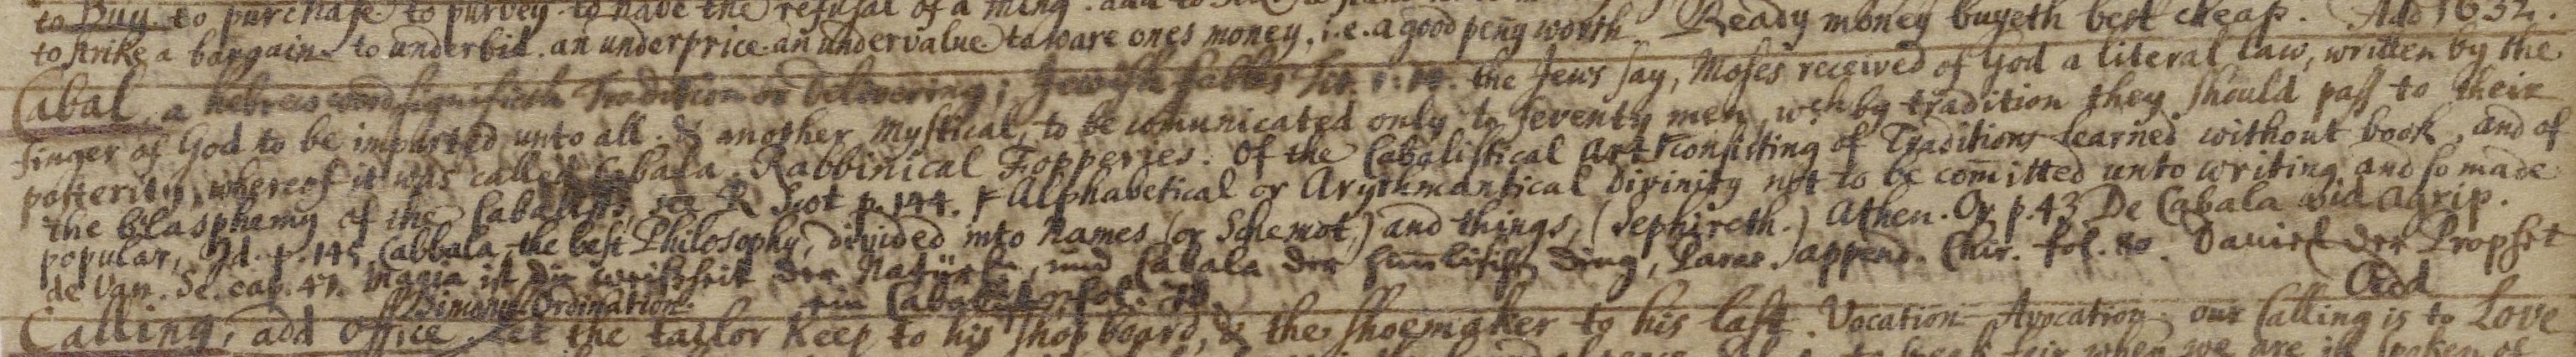 to Buy. to purchase to purvey. to have the refusal of a thing. add to
to strike a bargain to underbid. an underprice. an undervalue to ware ones money, i.e. a good peny worth. Ready money buyeth best cheap. Add 1632.
Cabal, a hebrew word signifieth Tradition or delivering; Jewish fables Tit. 1. 14. the Jews say, Moses received of God a literal law, written by the
finger of God to be imparted unto all. & another mystical, to be comunicated only to seventy men, wch by tradition they should pass to their
posterity, whereof it was called Cabala. Rabbinical Fopperies. Of the Cabalistical art consisting of Traditions learned without book, and of
the blasphemy of the Cabalists, see R Scot p. 144. + Alphabetical or Arythmantical Divinity not to be comitted unto writing, and so made
popular, Id. p. 145. Cabbala the best Philosophy, divided into Names (or Schemot,) and things, (Sephireth.) Athen. Or. p. 43 De Cabala vid Agrip.
de Van. Sc. cap. 47. Magia ist die weissheit der Natur, und Cabala der ding, Parac. append. Chir. fol. Daniel der Prophet
ein Cabalist, fol. Add
Simony Ordination.
Calling, add Office. Let the tailor keep to his shop board, & the shoemaker to his last. Vocation Avocation. our Calling is to Love
speak fair when we are ill spoken of